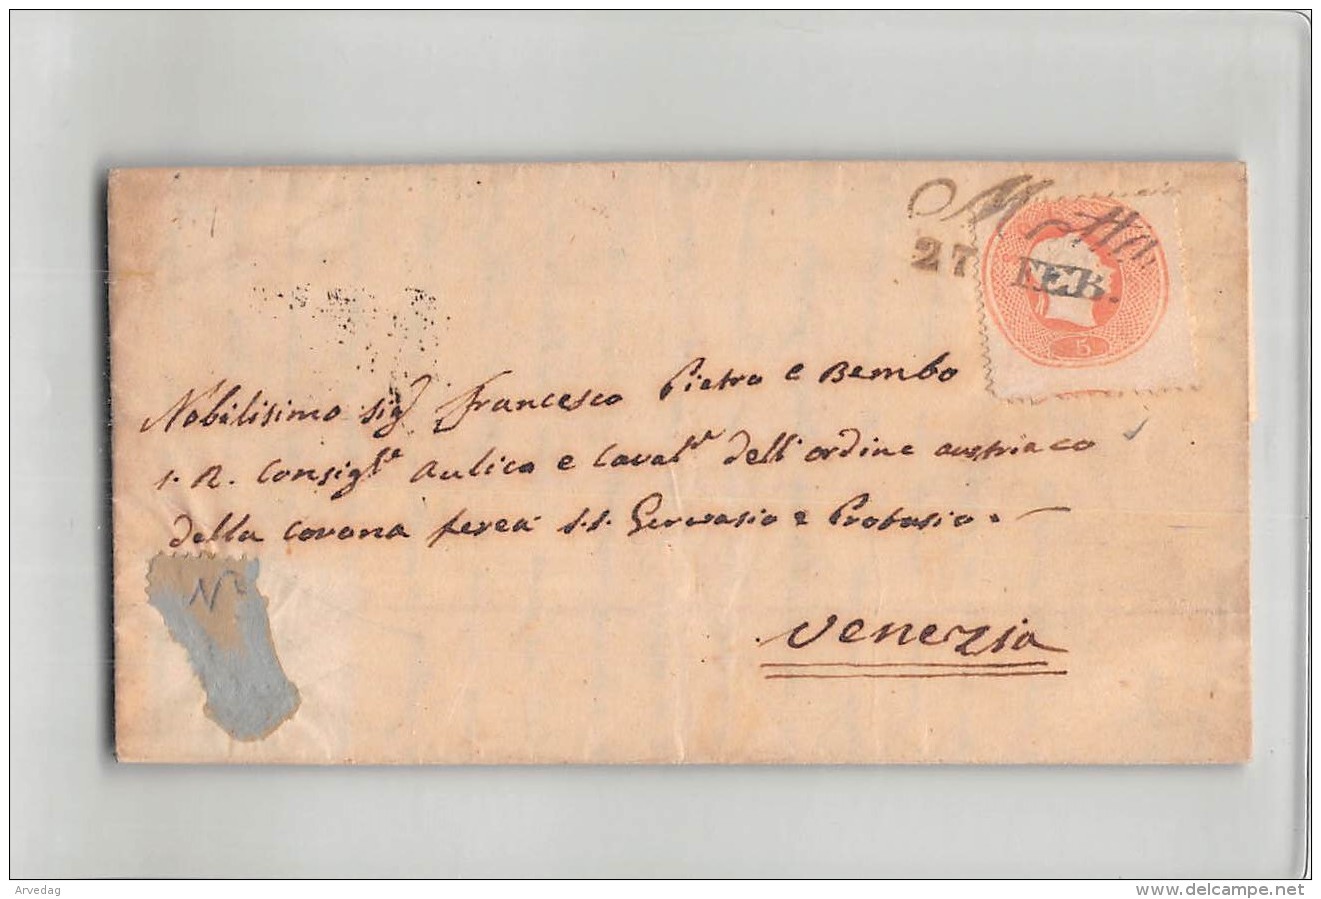 27 FEB.
5
Nobilisimo sig Francesco Pietro e Bembo
I. R. Consiglre Aulico e Cavalre dell'ordine austriaco
della Corona ferea S.S. Gervasio e Protasio.
Venezia
Arvedag
www.delcampe.net